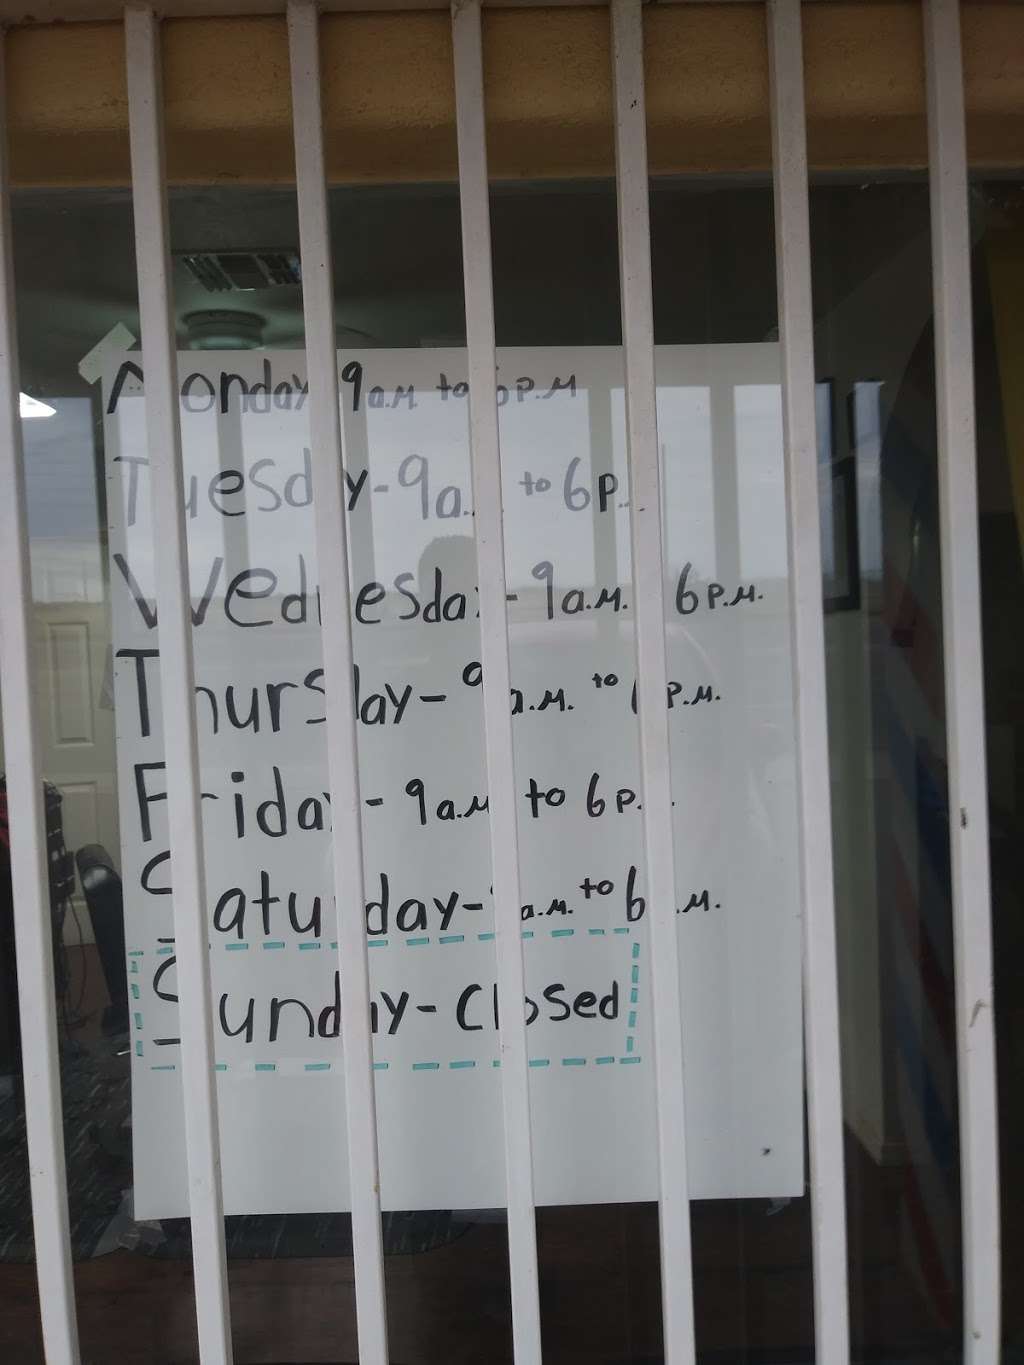 Monday 9a.m. to 6p.m
Tuesday-9a.m. to 6p.m.
Wednesday-9a.m. 6p.m.
Thursday-9a.m. to 6p.m.
Friday-9a.m to 6p.m.
Saturday-9a.m. to 6p.m.
Sunday-Closed